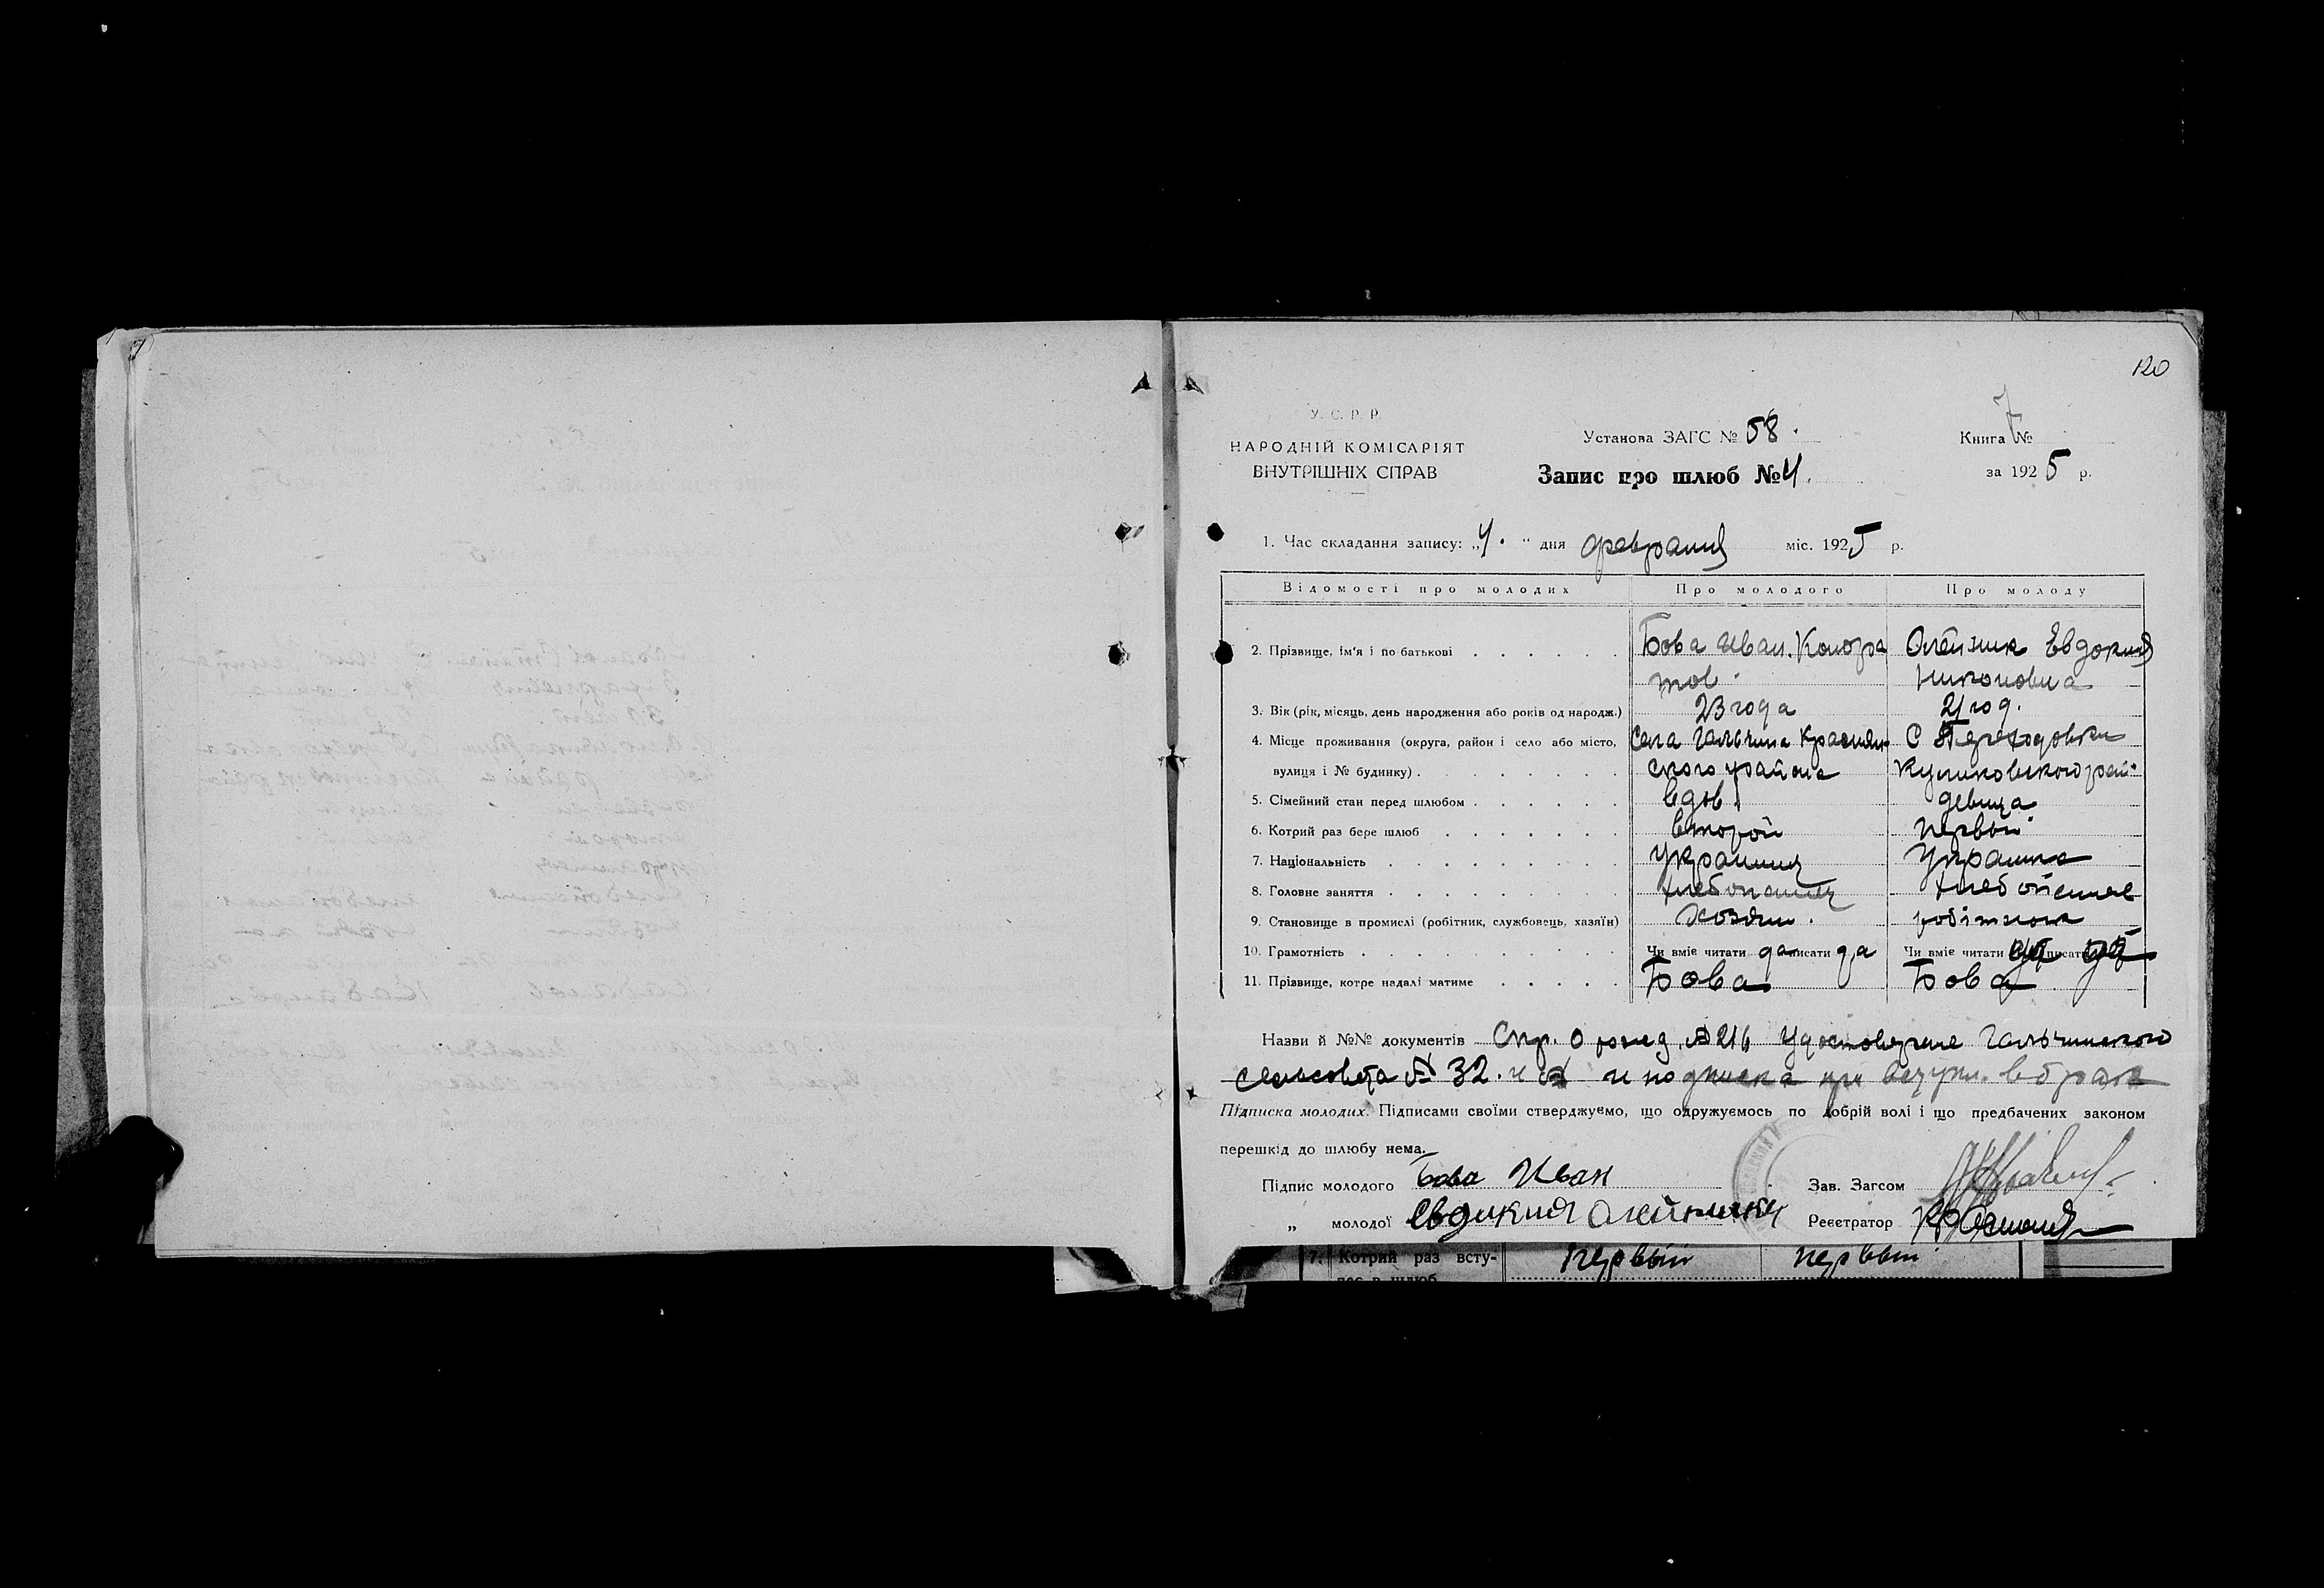 120
У. С. Р. Р.
НАРОДНІЙ КОМІСАРІЯТ
ВНУТРІШНІХ СПРАВ
Установа ЗАГС № 58.
Запис про шлюб № 4.
7
Книга №
за 1925 р.
1. Час складання запису: „4." дня февраля міс. 1925 р.
Відомості про молодих Про молодого Про молоду
2. Прізвище, ім'я і по батькові Бова Иван. Кондра Олейник Евдокия
тов. Никоновна
3. Вік (рік, місяць, день народження або років од народж.) 23 года 21 год.
4. Місце проживання (округа, район і село або місто, Села Гальчина Краснян С Переходовки
вулиця і № будинку) ского района Куликовского рай.
5. Сімейний стан перед шлюбом вдов. девица
6. Котрий раз бере шлюб второй первый
7. Національність Украинец Украинка
8. Головне заняття хлебопашец
9. Становище в промислі (робітник, службовець, хазяїн) хозяин. робітниця
10. Грамотність Чи вміє читати да писати да Чи вміє читати писати
11. Прізвище, котре надалі матиме Бова Бова
Назви й №№ документів Спр. о рожд. № 216 Удостоверение Гальчинского
сельсовета № 32. и и подписка при вступл. в брак
Підписка молодих. Підписами своїми стверджуємо, що одружуємось по добрій волі і що предбачених законом
перешкід до шлюбу нема.
Підпис молодого Бова Иван Зав. Загсом
„ молодої Евдикия Олейник Реєстратор
7. Котрий раз всту- первый первый
пає в шлюб